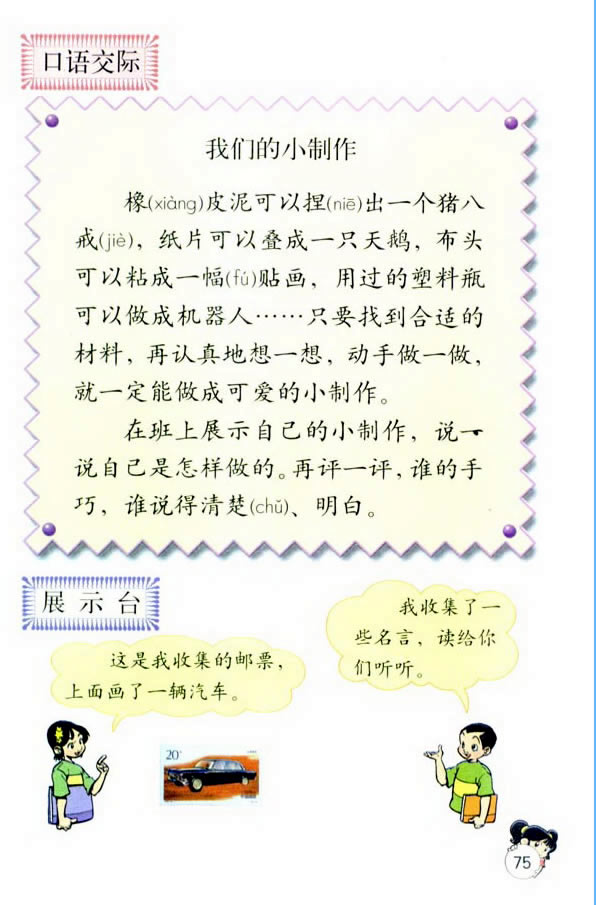 口语交际
我们的小制作
橡(xiàng)皮泥可以捏(niē)出一个猪八
戒(jiè)，纸片可以叠成一只天鹅，布头
可以粘成一幅(fú)贴画，用过的塑料瓶
可以做成机器人……只要找到合适的
材料，再认真地想一想，动手做一做，
就一定能做成可爱的小制作。
在班上展示自己的小制作，说一
说自己是怎样做的。再评一评，谁的手
巧，谁说得清楚(chǔ)、明白。
展示台
我收集了一
些名言，读给你
们听听。
这是我收集的邮票，
上面画了一辆汽车。
20
75